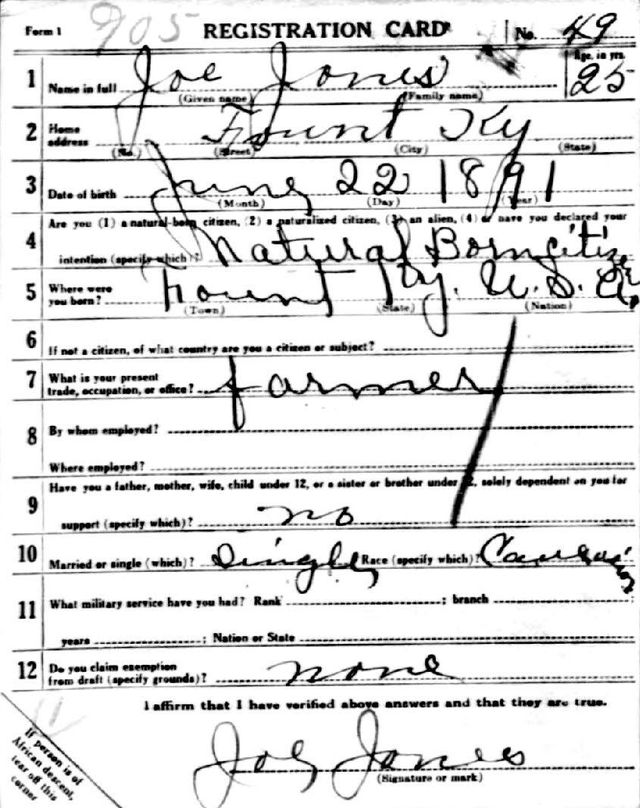 Form 1 905 REGISTRATION CARD No. 49
Age, in yrs.
1 Name in full Joe Jones 25
(Given name) (Family name)
2 Home address Fount Ky
(No.) (Street) (City) (State)
3 Date of birth June 22 1891
(Month) (Day) (Year)
4 Are you (1) a natural-born citizen, (2) a naturalized citizen, (3) an alien, (4) or have you declared your
intention (specify which)? Natural Born citize
5 Where were you born? Fount Ky. U.S.A.
(Town) (State) (Nation)
6 If not a citizen, of what country are you a citizen or subject?
7 What is your present trade, occupation, or office? farmer
8 By whom employed?
Where employed?
9 Have you a father, mother, wife, child under 12, or a sister or brother under 12, solely dependent on you for
support (specify which)? no
10 Married or single (which)? Single Race (specify which)? Caucasion
11 What military service have you had? Rank ; branch
years ; Nation or State
12 Do you claim exemption from draft (specify grounds)? none
I affirm that I have verified above answers and that they are true.
If person is of
African descent,
tear off this
corner
Joe Jones
(Signature or mark)